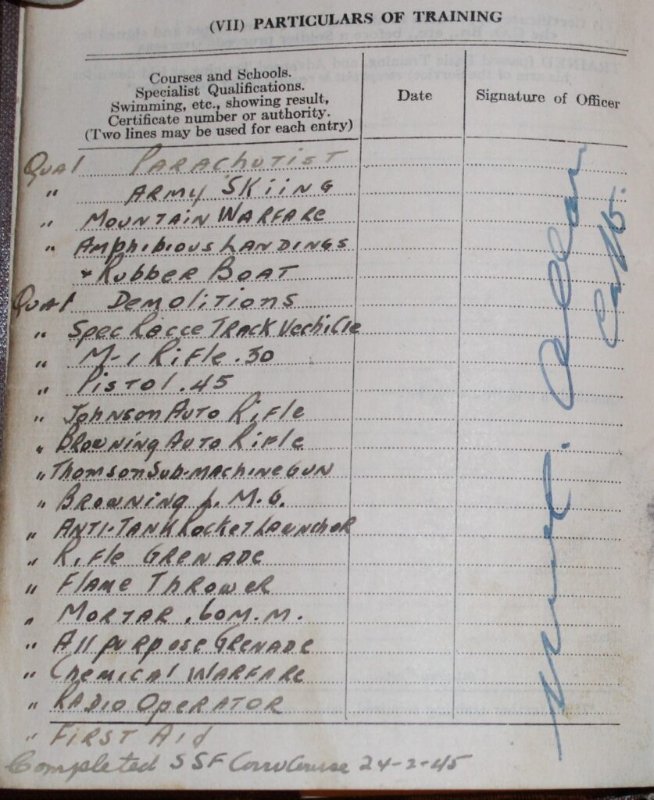 (VII) PARTICULARS OF TRAINING
Courses and Schools.
Specialist Qualifications.
Swimming, etc., showing result,
Certificate number or authority.
(Two lines may be used for each entry)
Date
Signature of Officer
Qual PARAchuTIST
" ARMY SKIING
" MOUNTAIN WARFARE
" AMphibious LANDINGS
+ RubbER BOAT
Qual DEMOLITIONS
" Spec Racce TRACK Vechilie
" M-1 RiFle .30
" PISTOL .45
" Johnson AUTO RiFle
" BROWNING AUTO RiFle
" Thomson Sub-machine GUN
" BROWNING L.M.G.
" ANTI-TANK Rocket LAunchER
" RiFle GRENADE
" FLAME THROWER
" MORTAR .60 M.M.
" All purpose GRENADE
" Chemical WARFARE
" RADIO OPERATOR
" FIRST Aid
Completed SSF Course 24-2-45